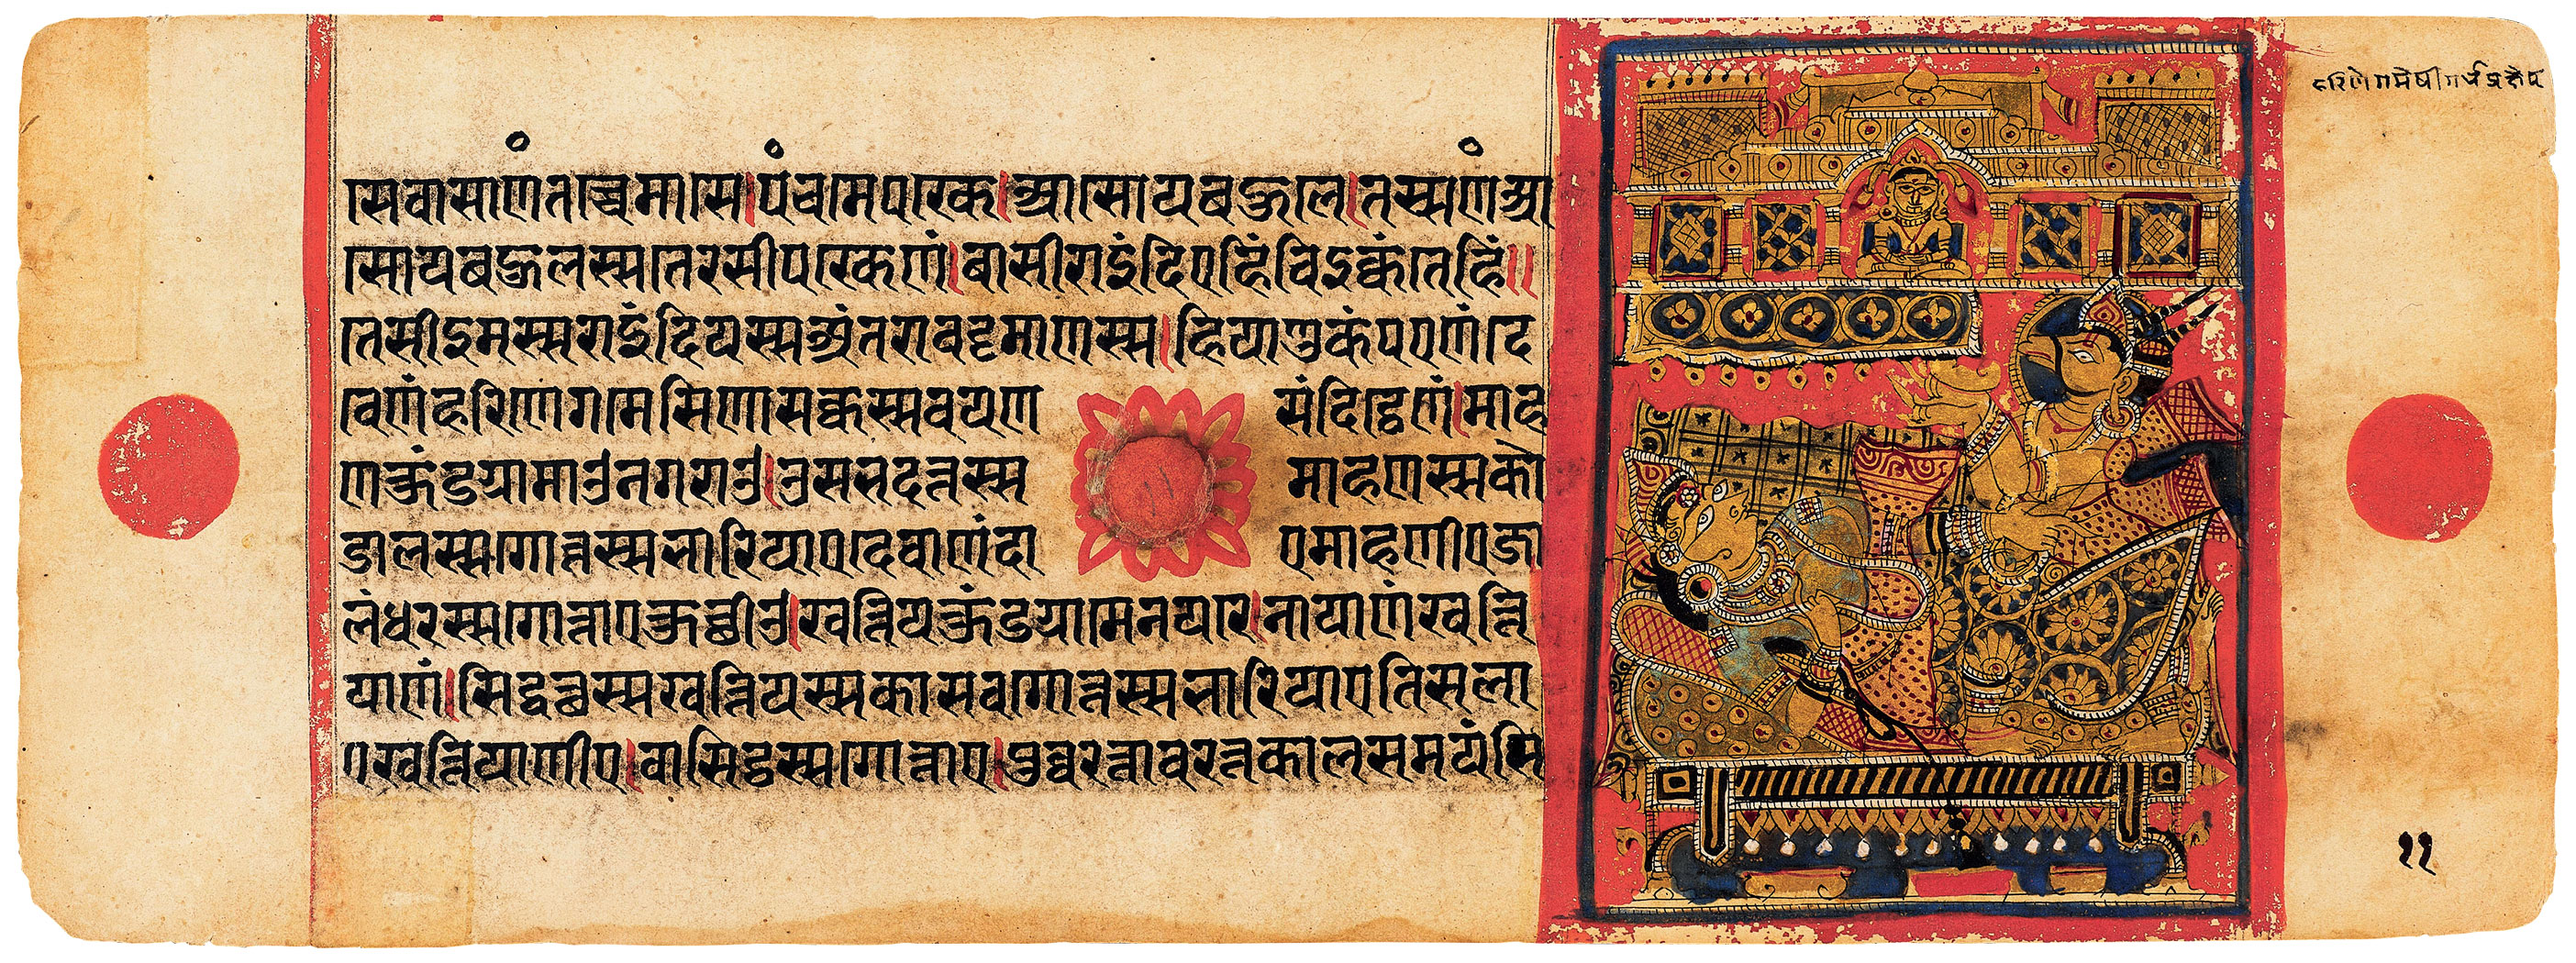 हरिणेगमेषी गर्भप्रक्षेप
सेवासाणं तच्चे मासे।पंचमे परके।आसोयबहुले।तस्सणं आ
सोयबहुलस्स तेरसीपरकेणं।बासीराइंदिएहिं विइक्कंतेहिं॥
तेसीइमस्स राइंदियस्स अंतरा वट्टमाणस्स।हियाणुकंपएणं दे
वेणं हरिणेगमेसिणा सक्कस्स वयण संदिट्ठेणं।माह
णकुंडग्गामाउ नगराउ।उसभदत्तस्स माहणस्स को
डालस्सगोत्तस्स भारियाए देवाणंदा ए माहणीए जा
लंधरस्सगोत्ताए कुच्छीउ।खत्तियकुंडग्गामे नयरे।नायाणं खत्ति
याणं।सिद्धत्थस्स खत्तियस्स कासवगोत्तस्स भारियाए तिसला
ए खत्तियाणीए।वासिट्ठस्सगोत्ताए।पुव्वरत्तावरत्तकालसमयंसि
११